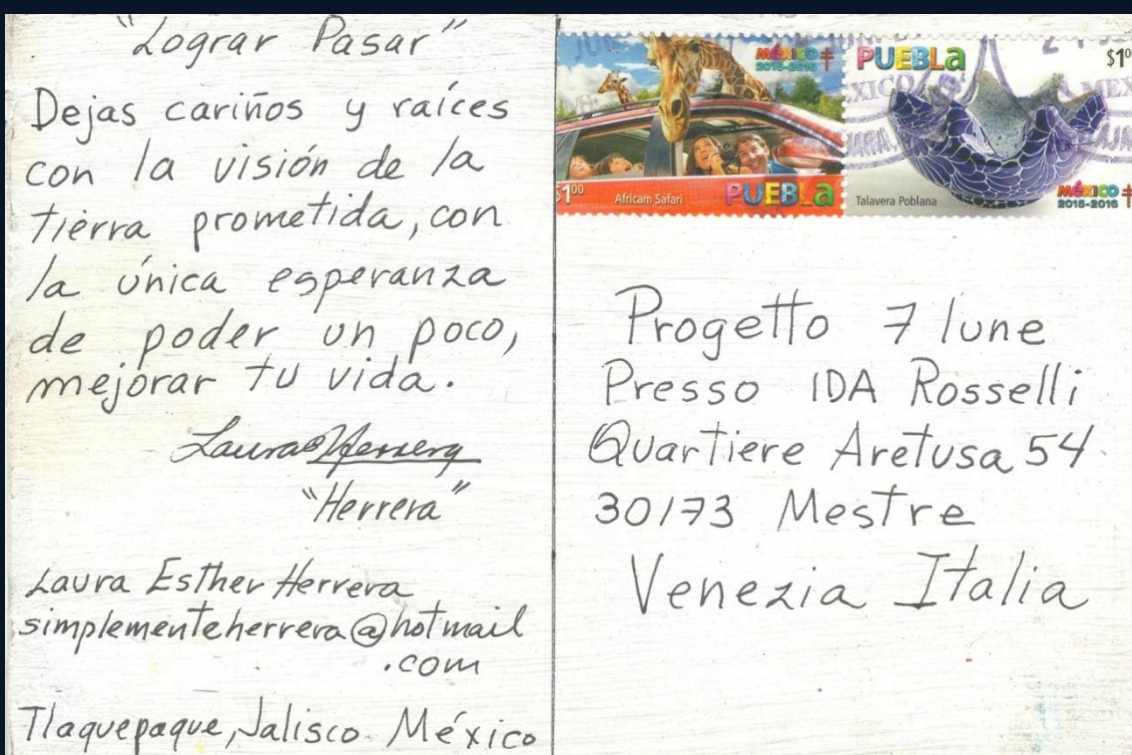 "Lograr Pasar"
Dejas cariños y raíces
con la visión de la
tierra prometida, con
la única esperanza
de poder un poco,
mejorar tu vida.
Laura Herrera
"Herrera"
Laura Esther Herrera
simplementeherrera@hotmail
.com
Tlaquepaque, Jalisco México
MÉXICO
2015-2016
$100
Africam Safari
PUEBLA
PUEBLA
$100
Talavera Poblana
MÉXICO
2015-2016
Progetto 7 lune
Presso IDA Rosselli
Quartiere Aretusa 54
30173 Mestre
Venezia Italia